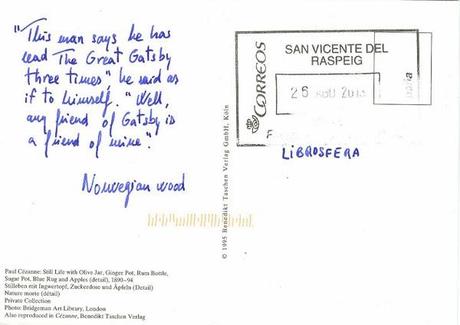 "This man says he has
read The Great Gatsby
three times" he said as
if to himself. "Well,
any friend of Gatsby is
a friend of mine".
Norwegian wood
Paul Cézanne: Still Life with Olive Jar, Ginger Pot, Rum Bottle,
Sugar Pot, Blue Rug and Apples (detail), 1890–94
Stilleben mit Ingwertopf, Zuckerdose und Äpfeln (Detail)
Nature morte (détail)
Private Collection
Photo: Bridgeman Art Library, London
Also reproduced in Cézanne, Benedikt Taschen Verlag
© 1995 Benedikt Taschen Verlag GmbH, Köln
CORREOS
SAN VICENTE DEL
RASPEIG
LIBROSFERA